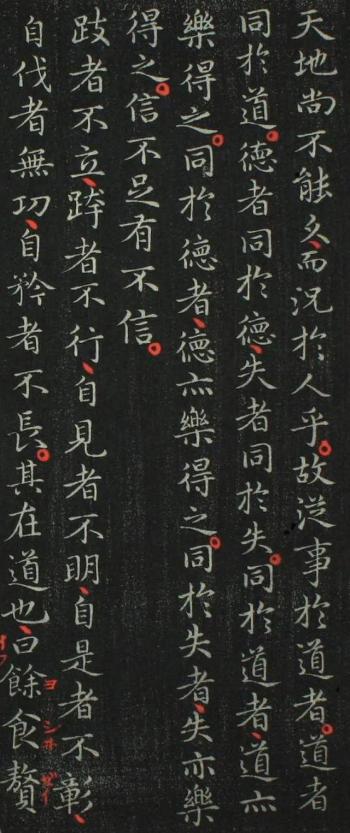 天地尚不能久、而況於人乎。故從事於道者。道者
同於道。德者同於德、失者同於失。同於道者、道亦
樂得之。同於德者、德亦樂得之。同於失者、失亦樂
得之。信不足有不信。
跂者不立、跨者不行、自見者不明、自是者不彰、
自伐者無功、自矜者不長。其在道也、曰餘食贅